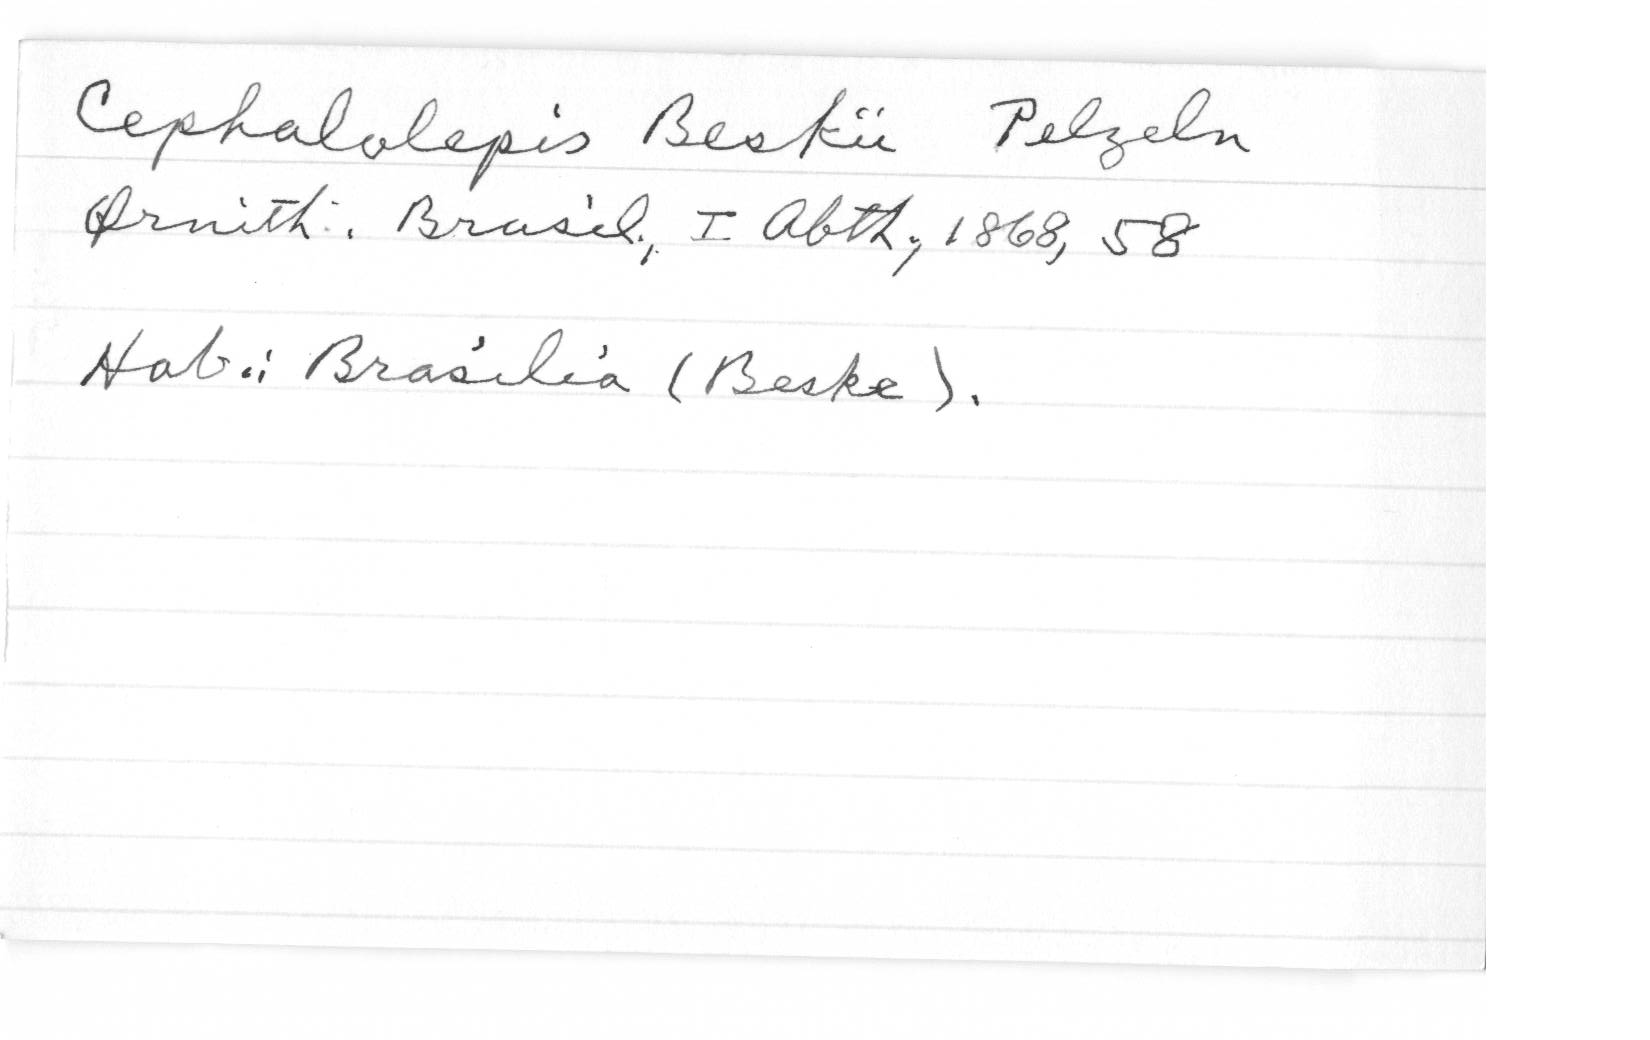 Cephalolepis Beskii Pelzeln
Ornith. Brasil., I Abth., 1868, 58
Hab.: Brasilia (Beske).